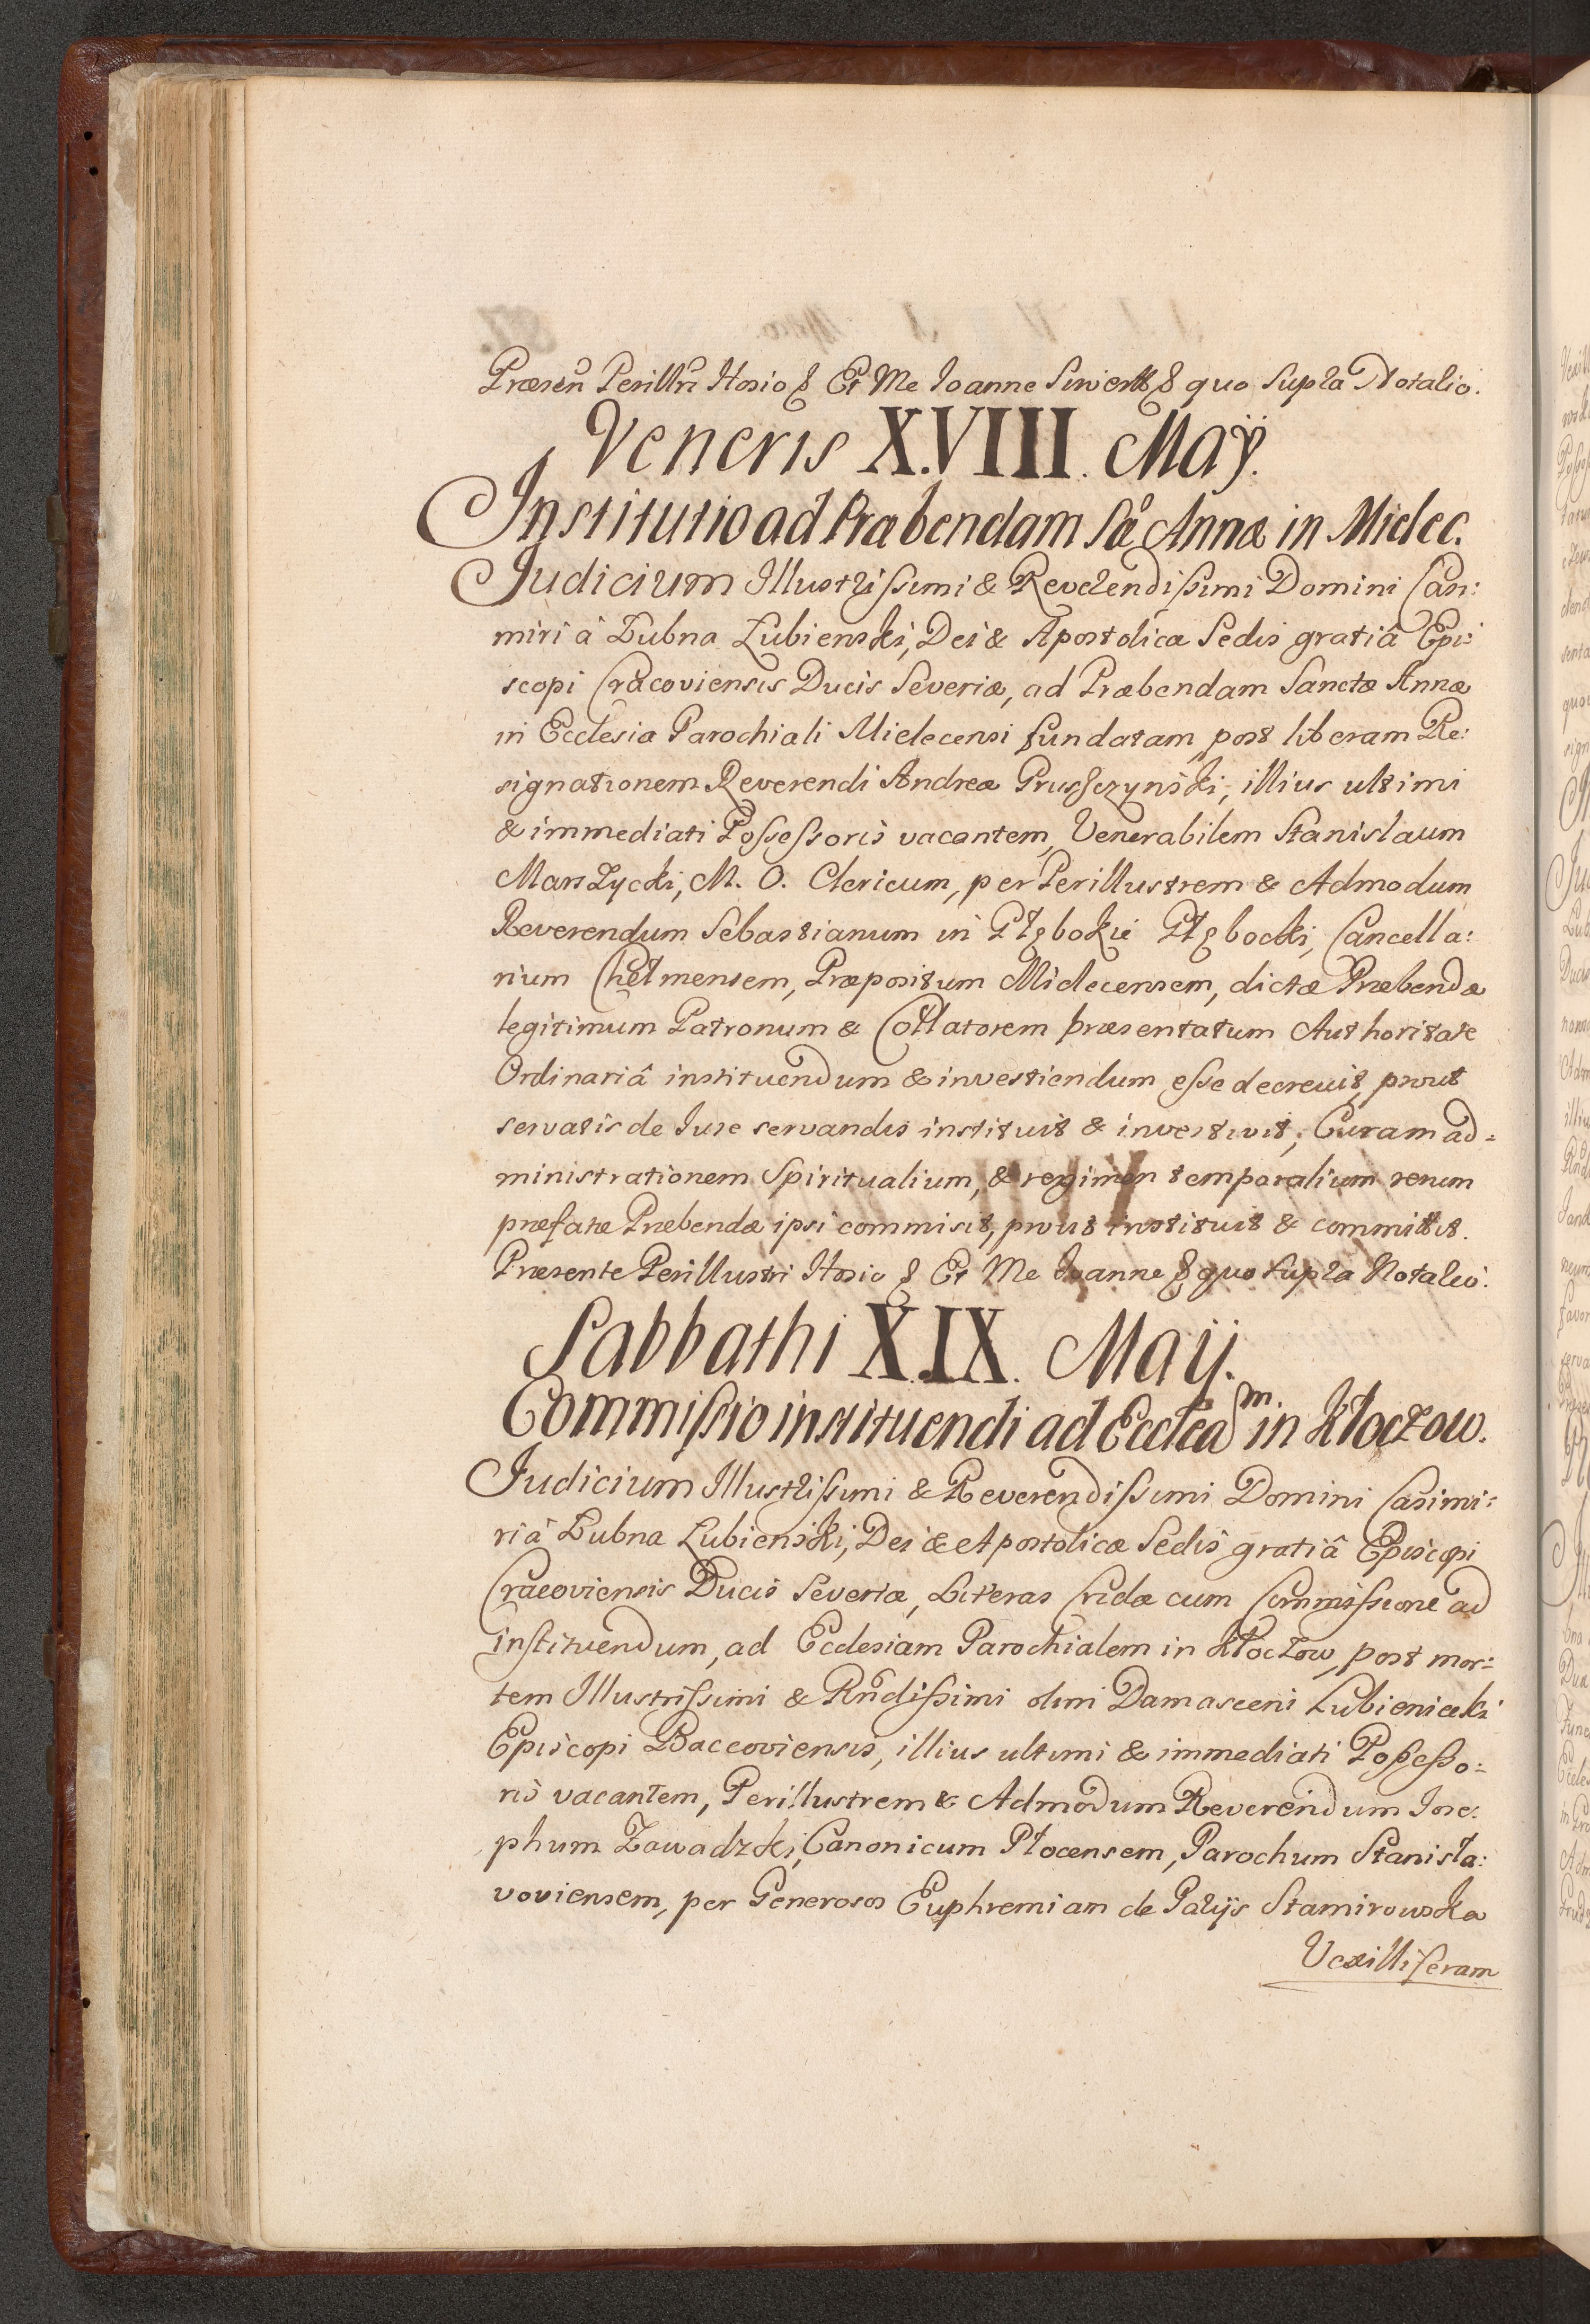 Præsen Perillri Hosio & Et Me Joanne Siwert & quo Supra Notario.
Veneris X.VIII. Maÿ.
Institutio ad Præbendam Sæ Annæ in Mielec.
Judicium Illustrissimi & Reverendissimi Domini Casi:
miri â Łubna Łubienski, Dei & Apostolicæ Sedis gratiâ Epi:
scopi Cracoviensis Ducis Severiæ, ad Præbendam Sanctæ Annæ
in Ecclesia Parochiali Mielecensi fundatam post liberam Re:
signationem Reverendi Andreæ Prusszynski, illius ultimi
& immediati Possessoris vacantem, Venerabilem Stanislaum
Marszycki, M. O. Clericum, per Perillustrem & Admodum
Reverendum Sebastianum in Głębokie Głębocki, Cancella:
rium Chełmensem, Præpositum Mielecensem, dictæ Præbendæ
legitimum Patronum & Collatorem præsentatum Authoritate
Ordinariâ instituendum & investiendum esse decrevit, prout
servatis de Jure servandis instituit & investivit; Curam ad=
ministrationem Spiritualium, & regimen temporalium rerum
præfatæ Præbendæ ipsi commisit, prout instituit & committit.
Præsente Perillustri Hosio & Et Me Joanne & quo supra Notario.
Sabbathi X.IX. Maij.
Commissio instituendi ad Ecclea͠m. in Kłoczow.
Judicium Illustrissimi & Reverendissimi Domini Casimi=
ri â Łubna Łubienski, Dei & Apostolicæ Sedis gratiâ Episcopi
Cracoviensis Ducis Severiæ, Literas Cridæ cum Commissione ad
instituendum, ad Ecclesiam Parochialem in Kłoczow, post mor=
tem Illustrissimi & Rndissimi olim Damasceni Lubieniecki
Episcopi Baccoviensis, illius ultimi & immediati Possesso=
ris vacantem, Perillustrem & Admodum Reverendum Jose:
phum Zawadzki, Canonicum Płocensem, Parochum Stanisła:
voviensem, per Generosos Euphremiam de Parijs Stamirowska
Vexilliferam